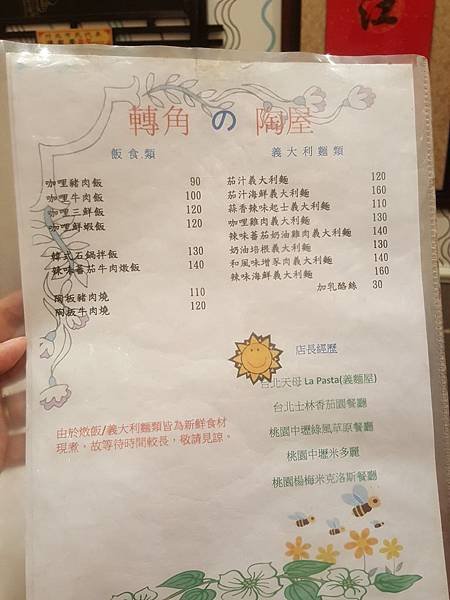 轉角 の 陶屋
飯食類
咖哩豬肉飯 90
咖哩牛肉飯 100
咖哩三鮮飯 120
咖哩鮮蝦飯 120
韓式石鍋拌飯 130
辣味蕃茄牛肉燉飯 140
陶板豬肉燒 110
陶板牛肉燒 120
義大利麵類
茄汁義大利麵 120
茄汁海鮮義大利麵 160
蒜香辣味起士義大利麵 110
咖哩雞肉義大利麵 130
辣味蕃茄奶油雞肉義大利麵 140
奶油培根義大利麵 130
和風味增豚肉義大利麵 140
辣味海鮮義大利麵 160
加乳酪絲 30
由於燉飯/義大利麵類皆為新鮮食材
現煮,故等待時間較長,敬請見諒。
店長經歷
台北天母 La Pasta(義麵屋)
台北士林香茄園餐廳
桃園中壢綠風草原餐廳
桃園中壢米多麗
桃園楊梅米克洛斯餐廳